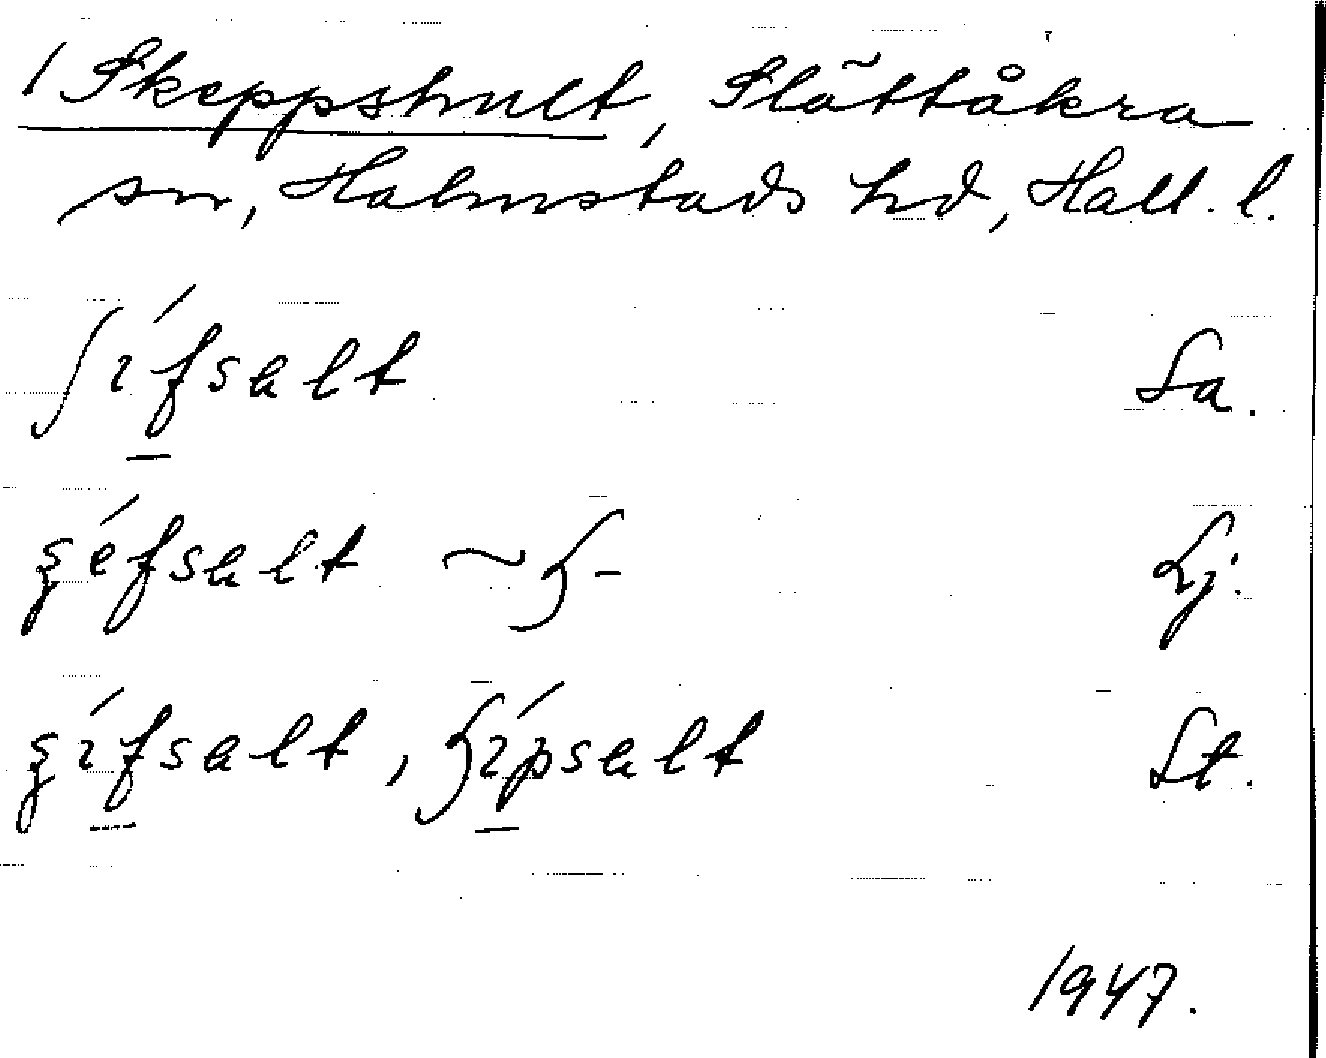 1 Skeppshult, Slättåkra
sn, Halmstads hd, Hall. l.
ʃı́fsalt Sa.
ʂéfsalt ~ ɧ- Lj.
ʂı́fsalt, ɧı́psalt St.
1947.